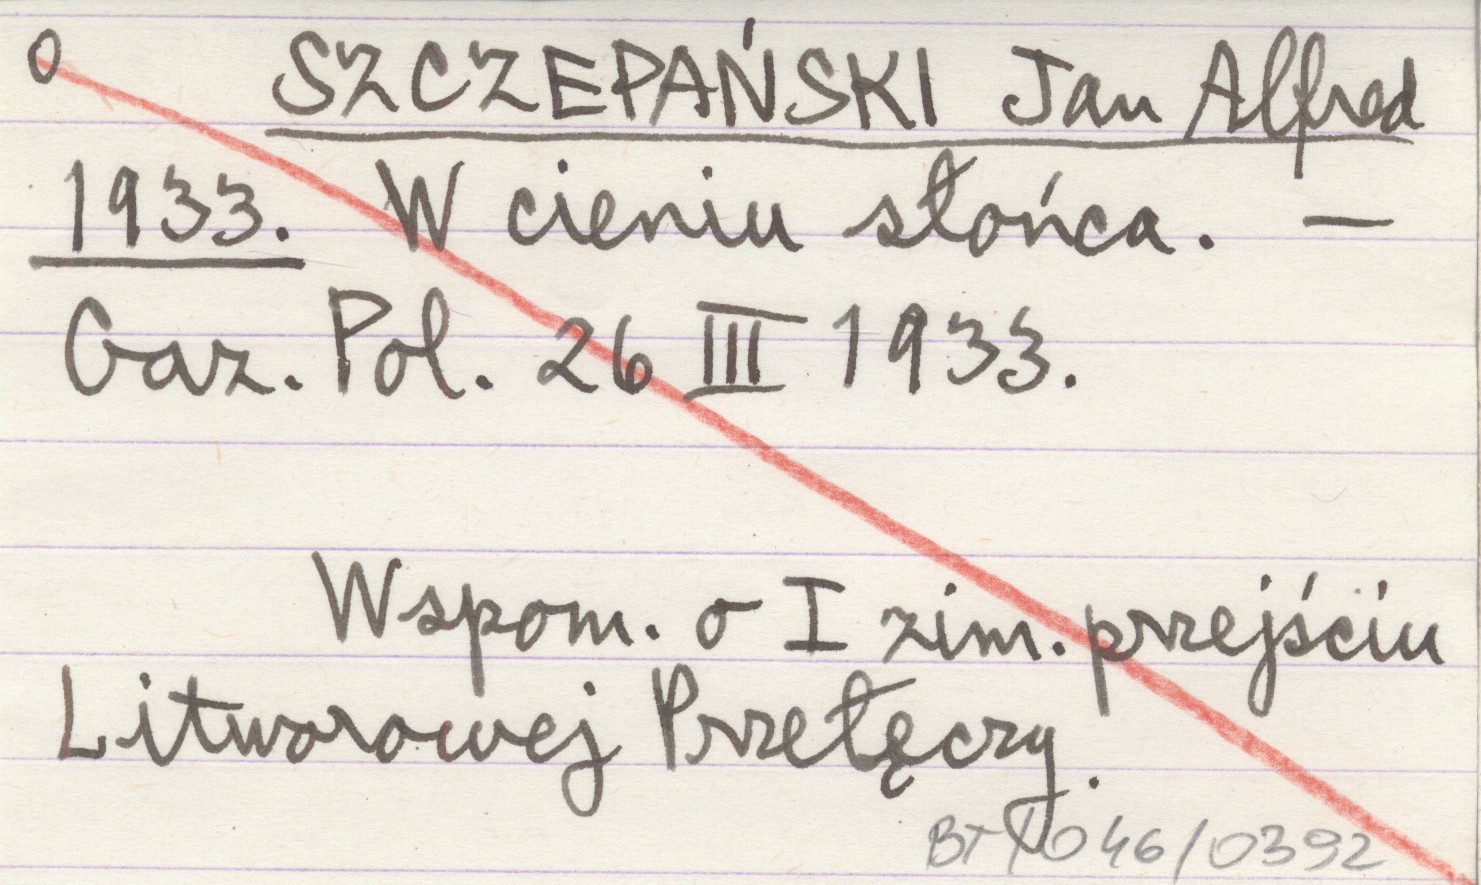 o SZCZEPAŃSKI Jan Alfred
1933. W cieniu słońca. —
Gaz. Pol. 26 III 1933.
Wspom. o I zim. przejściu
Litworowej Przełęczy.
BT/046/0392